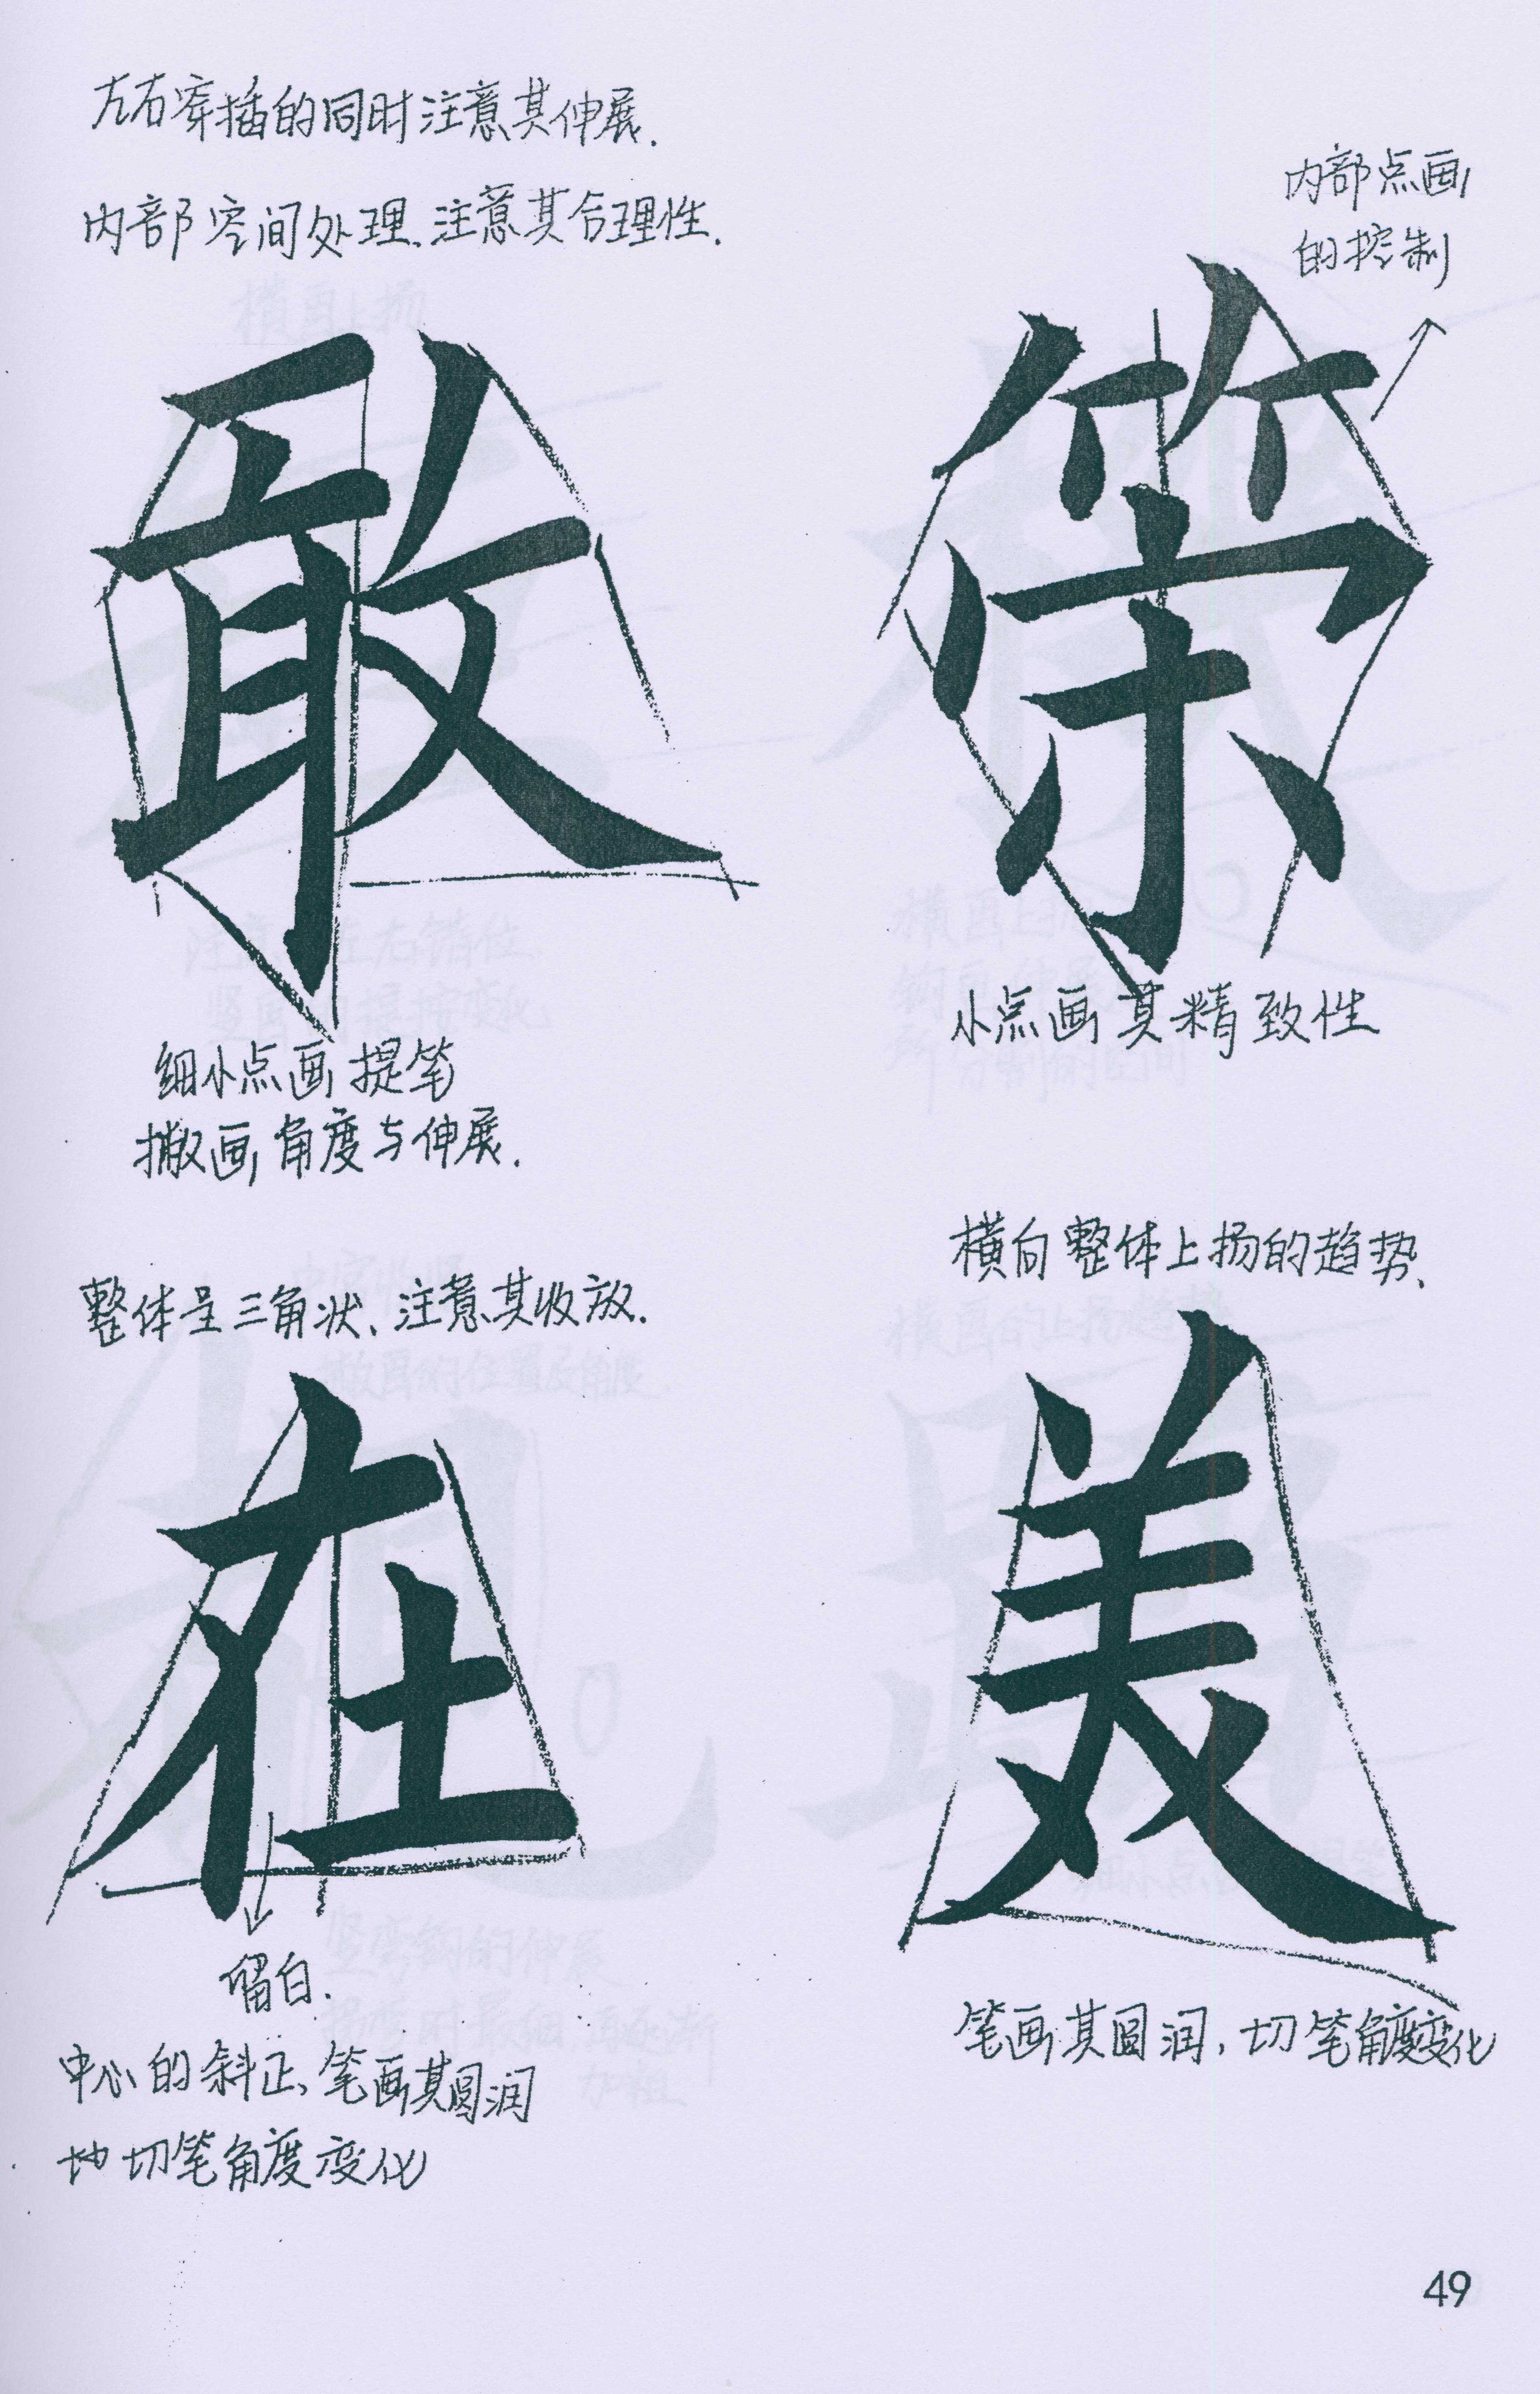 左右穿插的同时注意其伸展.
内部空间处理、注意其合理性.
敢
细小点画提笔
撇画角度与伸展.
内部点画
的控制
小点画其精致性
整体呈三角状、注意其收放.
在
留白.
中心的斜正、笔画其圆润
地切笔角度变化
横向整体上扬的趋势、
美
笔画其圆润,切笔角度变化
49